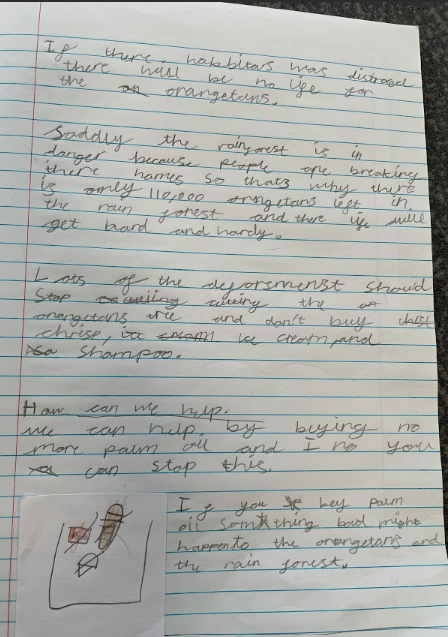 If there habbitars was distroed
there will be no life for
the orangetans.
Saddly the rainforest is in
danger because people are breaking
there homes so thats why there
is only 110,000 orangetans left in
the rain forest and there life will
get hard and hardy.
Lots of the deforismenst should
stop cutting the
orangetans tree and don't buy
chrisp, ice cream and
shampoo.
How can we help.
we can help, by buying no
more palm oil and I no you
can stop this.
If you bey palm
oil something bad might
happento the orangetans and
the rain forest.